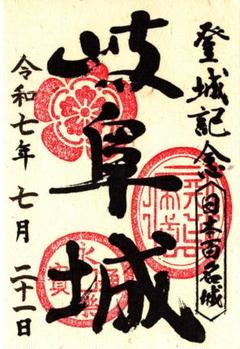 登城記念
日本百名城
岐阜城
令和七年 七月 二十一日